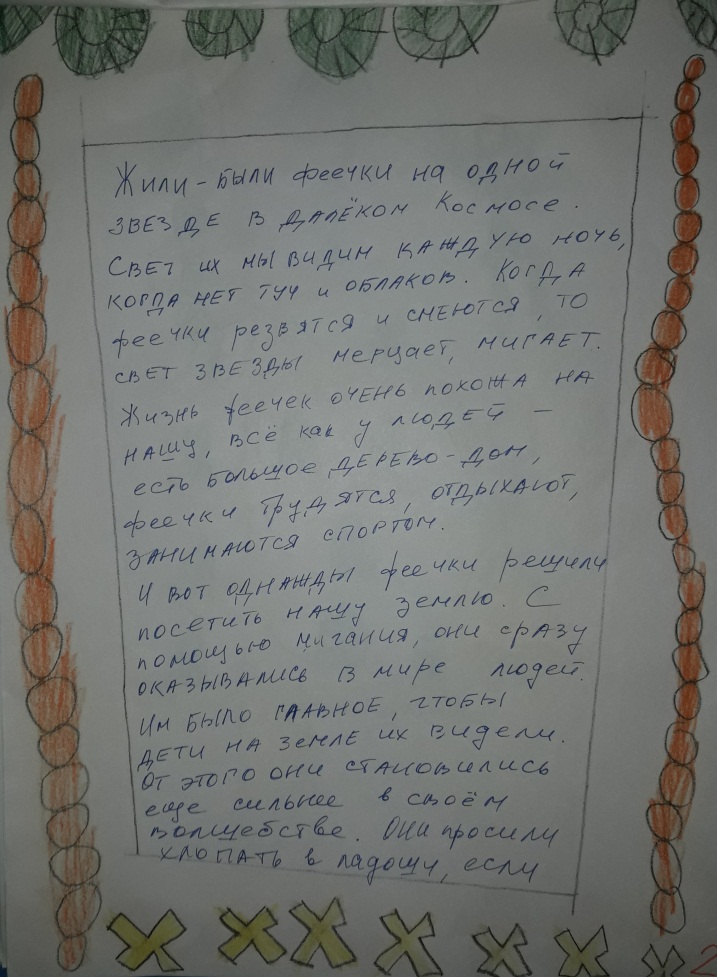 Жили-были феечки на одной
звезде в далёком Космосе.
Свет их мы видим каждую ночь,
когда нет туч и облаков. Когда
феечки резвятся и смеются, то
свет звезды мерцает, мигает.
Жизнь феечек очень похожа на
нашу, всё как у людей –
есть большое дерево-дом,
феечки трудятся, отдыхают,
занимаются спортом.
И вот однажды феечки решили
посетить нашу землю. С
помощью мигания, они сразу
оказывались в мире людей.
Им было главное, чтобы
дети на земле их видели.
От этого они становились
еще сильнее в своём
волшебстве. Они просили
хлопать в ладоши, если
2